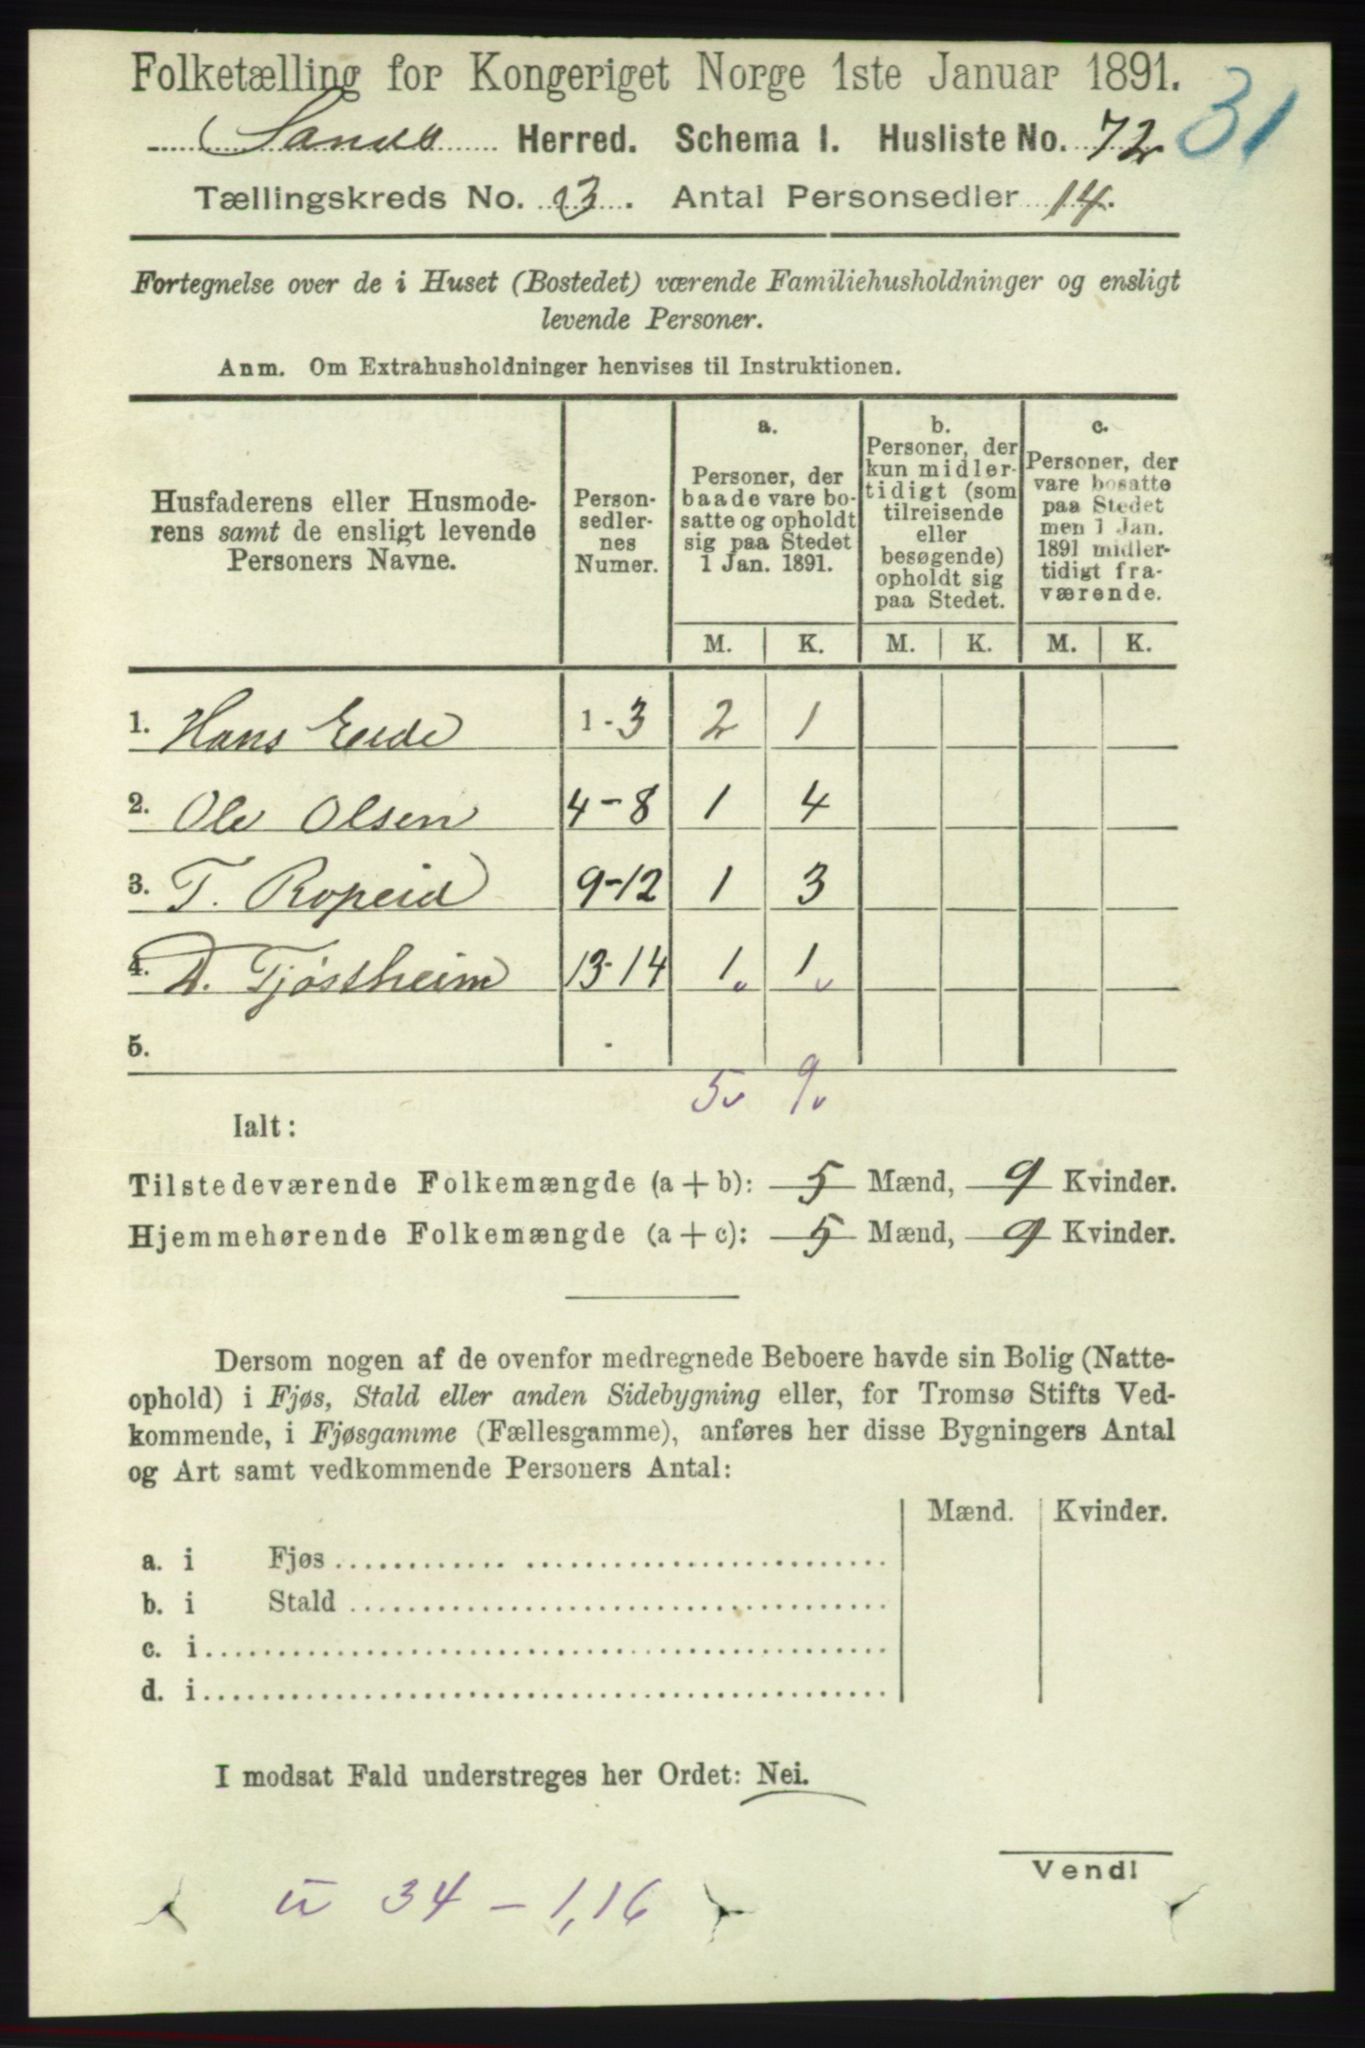 Folketælling for Kongeriget Norge 1ste Januar 1891.
31
Herred. Schema I. Husliste No. 72
Tællingskreds No. 3. Antal Personsedler 14.
Fortegnelse over de i Huset (Bostedet) værende Familiehusholdninger og ensligt
levende Personer.
Anm. Om Extrahusholdninger henvises til Instruktionen.
Husfaderens eller Husmode-
rens samt de ensligt levende
Personers Navne.
Person-
sedler-
nes
Numer.
a.
Personer, der
baade vare bo-
satte og opholdt
sig paa Stedet
1 Jan. 1891.
b.
Personer, der
kun midler-
tidigt (som
tilreisende
eller
besøgende)
opholdt sig
paa Stedet.
c.
Personer, der
vare bosatte
paa Stedet
men 1 Jan.
1891 midler-
tidigt fra-
værende.
M. K. M. K. M. K.
1. Hans 1-3 2 1
2. Ole Olsen 4-8 1 4
3. T. Ropeid 9-12 1 3
4. D. Tjøstheim 13-14 1 1
5. -
5 9
Ialt:
Tilstedeværende Folkemængde (a + b): 5 Mænd, 9 Kvinder.
Hjemmehørende Folkemængde (a + c): 5 Mænd, 9 Kvinder.
Dersom nogen af de ovenfor medregnede Beboere havde sin Bolig (Natte-
ophold) i Fjøs, Stald eller anden Sidebygning eller, for Tromsø Stifts Ved-
kommende, i Fjøsgamme (Fællesgamme), anføres her disse Bygningers Antal
og Art samt vedkommende Personers Antal:
Mænd. Kvinder.
a. i Fjøs
b. i Stald
c. i
d. i
I modsat Fald understreges her Ordet: Nei.
Vend!
34 - 1,16